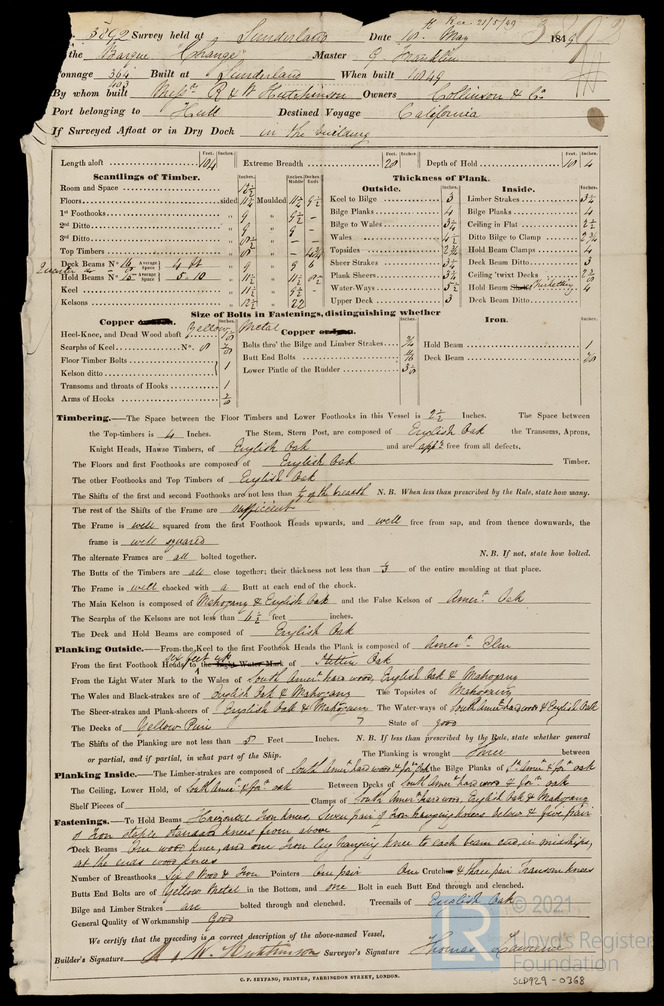 H Rec. 21/5/49
No. 5892 Survey held at Sunderland Date 10th May 1849
the Barque "Change" Master G. Franklin
Tonnage 364 Built at Sunderland When built 1849
By whom built Messrs R & W Hutchinson Owners Collinson & Co
Port belonging to Hull Destined Voyage California
If Surveyed Afloat or in Dry Dock in the building
Feet. Inches. Feet. Inches. Feet. Inches.
Length aloft 104 Extreme Breadth 20 Depth of Hold 10 4
Scantlings of Timber. Thickness of Plank.
Outside. Inside.
Room and Space
Floors sided Moulded
1st Foothooks " 9 "
2nd Ditto " 9 " 9 –
3rd Ditto
Top Timbers
Deck Beams No 16 Average Space 4 ft " 9 " 9 6
Hold Beams No 15 Average Space 5.10
Keel
Kelsons 12½ 22
Keel to Bilge 3
Bilge Planks 4
Bilge to Wales 3½
Wales 4½
Topsides 2¾
Sheer Strakes
Plank Sheers
Water-Ways 5½
Upper Deck 3
Limber Strakes 3½
Bilge Planks 4
Ceiling in Flat 2½
Ditto Bilge to Clamp 2¾
Hold Beam Clamps 4
Deck Beam Ditto 3
Ceiling 'twixt Decks
Hold Beam Shelf 4
Deck Beam Ditto
Size of Bolts in Fastenings, distinguishing whether
Copper Yellow Metal Copper or Iron. Iron.
Heel-Knee, and Dead Wood abaft
Scarphs of Keel No. 8
Floor Timber Bolts
Kelson ditto 1
Transoms and throats of Hooks 1
Arms of Hooks
Bolts thro' the Bilge and Limber Strakes
Butt End Bolts
Lower Pintle of the Rudder
Hold Beam 1
Deck Beam
Timbering.—The Space between the Floor Timbers and Lower Foothooks in this Vessel is 2½ Inches. The Space between
the Top-timbers is 4 Inches. The Stem, Stern Post, are composed of English Oak the Transoms, Aprons,
Knight Heads, Hawse Timbers, of English Oak and are free from all defects.
The Floors and first Foothooks are composed of English Oak Timber.
The other Foothooks and Top Timbers of English Oak
The Shifts of the first and second Foothooks are not less than of the breadth N. B. When less than prescribed by the Rule, state how many.
The rest of the Shifts of the Frame are sufficient
The Frame is well squared from the first Foothook Heads upwards, and well free from sap, and from thence downwards, the
frame is well squared
The alternate Frames are all bolted together. N. B. If not, state how bolted.
The Butts of the Timbers are all close together; their thickness not less than ⅓ of the entire moulding at that place.
The Frame is well chocked with a Butt at each end of the chock.
The Main Kelson is composed of Mahogany & English Oak and the False Kelson of Amern Oak
The Scarphs of the Kelsons are not less than 6½ feet inches.
The Deck and Hold Beams are composed of English Oak
Planking Outside.—From the Keel to the first Foothook Heads the Plank is composed of Amern Elm
six feet up
From the first Foothook Heads to the Light Water Mark of Stettin Oak
From the Light Water Mark to the Wales of South Amern hard wood, English Oak & Mahogany
The Wales and Black-strakes are of English Oak & Mahogany The Topsides of Mahogany
The Sheer-strakes and Plank-sheers of English Oak & Mahogany The Water-ways of South Amern hard wood & English Oak
The Decks of Yellow Pine State of good
The Shifts of the Planking are not less than 5 Feet Inches. N. B. If less than prescribed by the Rule, state whether general
or partial, and if partial, in what part of the Ship. The Planking is wrought Three between
Planking Inside.—The Limber-strakes are composed of South Amern hard wood & forn Oak the Bilge Planks of Sth Amern & forn oak
The Ceiling, Lower Hold, of South Amern & forn oak Between Decks of South Amern hard wood & forn oak
Shelf Pieces of Clamps of South Amern hard wood, English Oak & Mahogany
Fastenings.—To Hold Beams Iron knees, Seven pair of Iron hanging knees below & five pair
of Iron staple standard knees from above
Deck Beams One wood knee, and one Iron lug hanging knee to each beam end, in midships,
at the ends wood knees
Number of Breasthooks Six of Wood & Iron Pointers One pair One Crutch & three pair Transom knees
Butts End Bolts are of Yellow Metal in the Bottom, and one Bolt in each Butt End through and clenched.
Bilge and Limber Strakes are bolted through and clenched. Treenails of English Oak
General Quality of Workmanship Good
We certify that the preceding is a correct description of the above-named Vessel,
Builder's Signature R & W Hutchinson Surveyor's Signature Thomas Lawrence
C. F. SEYFANG, PRINTER, FARRINGDON STREET, LONDON.
© 2021
Lloyd's Register
Foundation
SLD929-0368